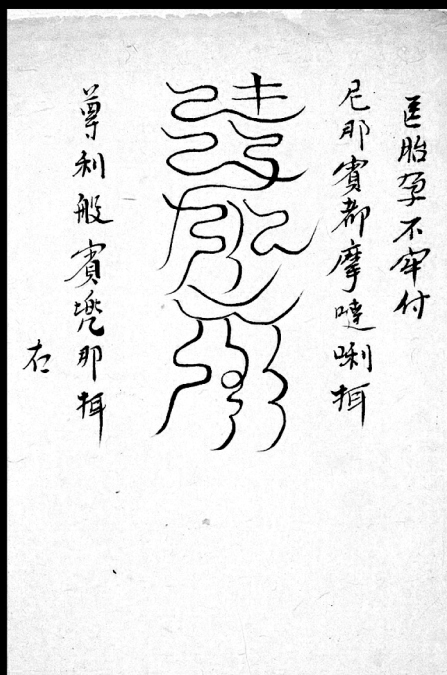 医胎孕不牢付
尼那賓都摩噠唎揖
尊利般賓兠那揖
右